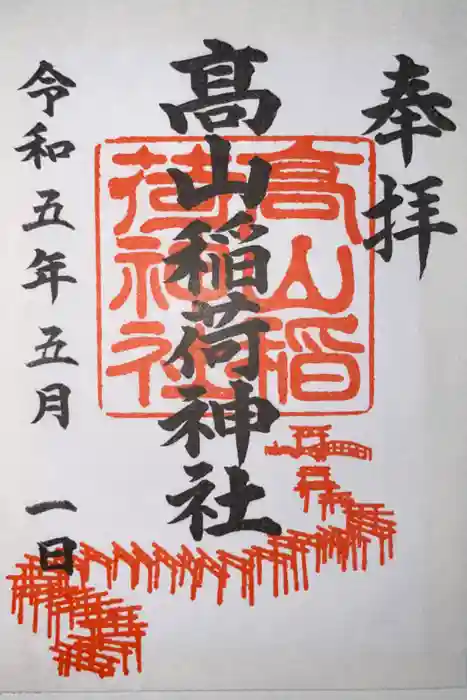 奉拝
髙山稲荷神社
高山稲荷神社
令和五年五月 一日